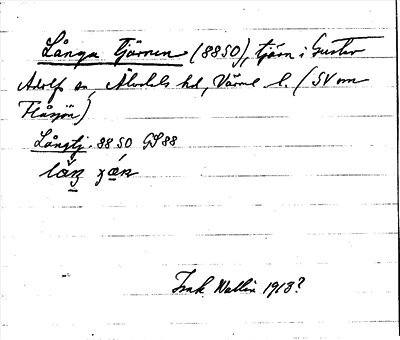 Långa Tjärnen (8850), tjärn i Gustav
Adolfs sn, Älvdals hd, Värml. l. (SV om
Flåsjön)
Långtj. 8850 GS88
Isak Wallin 1913?